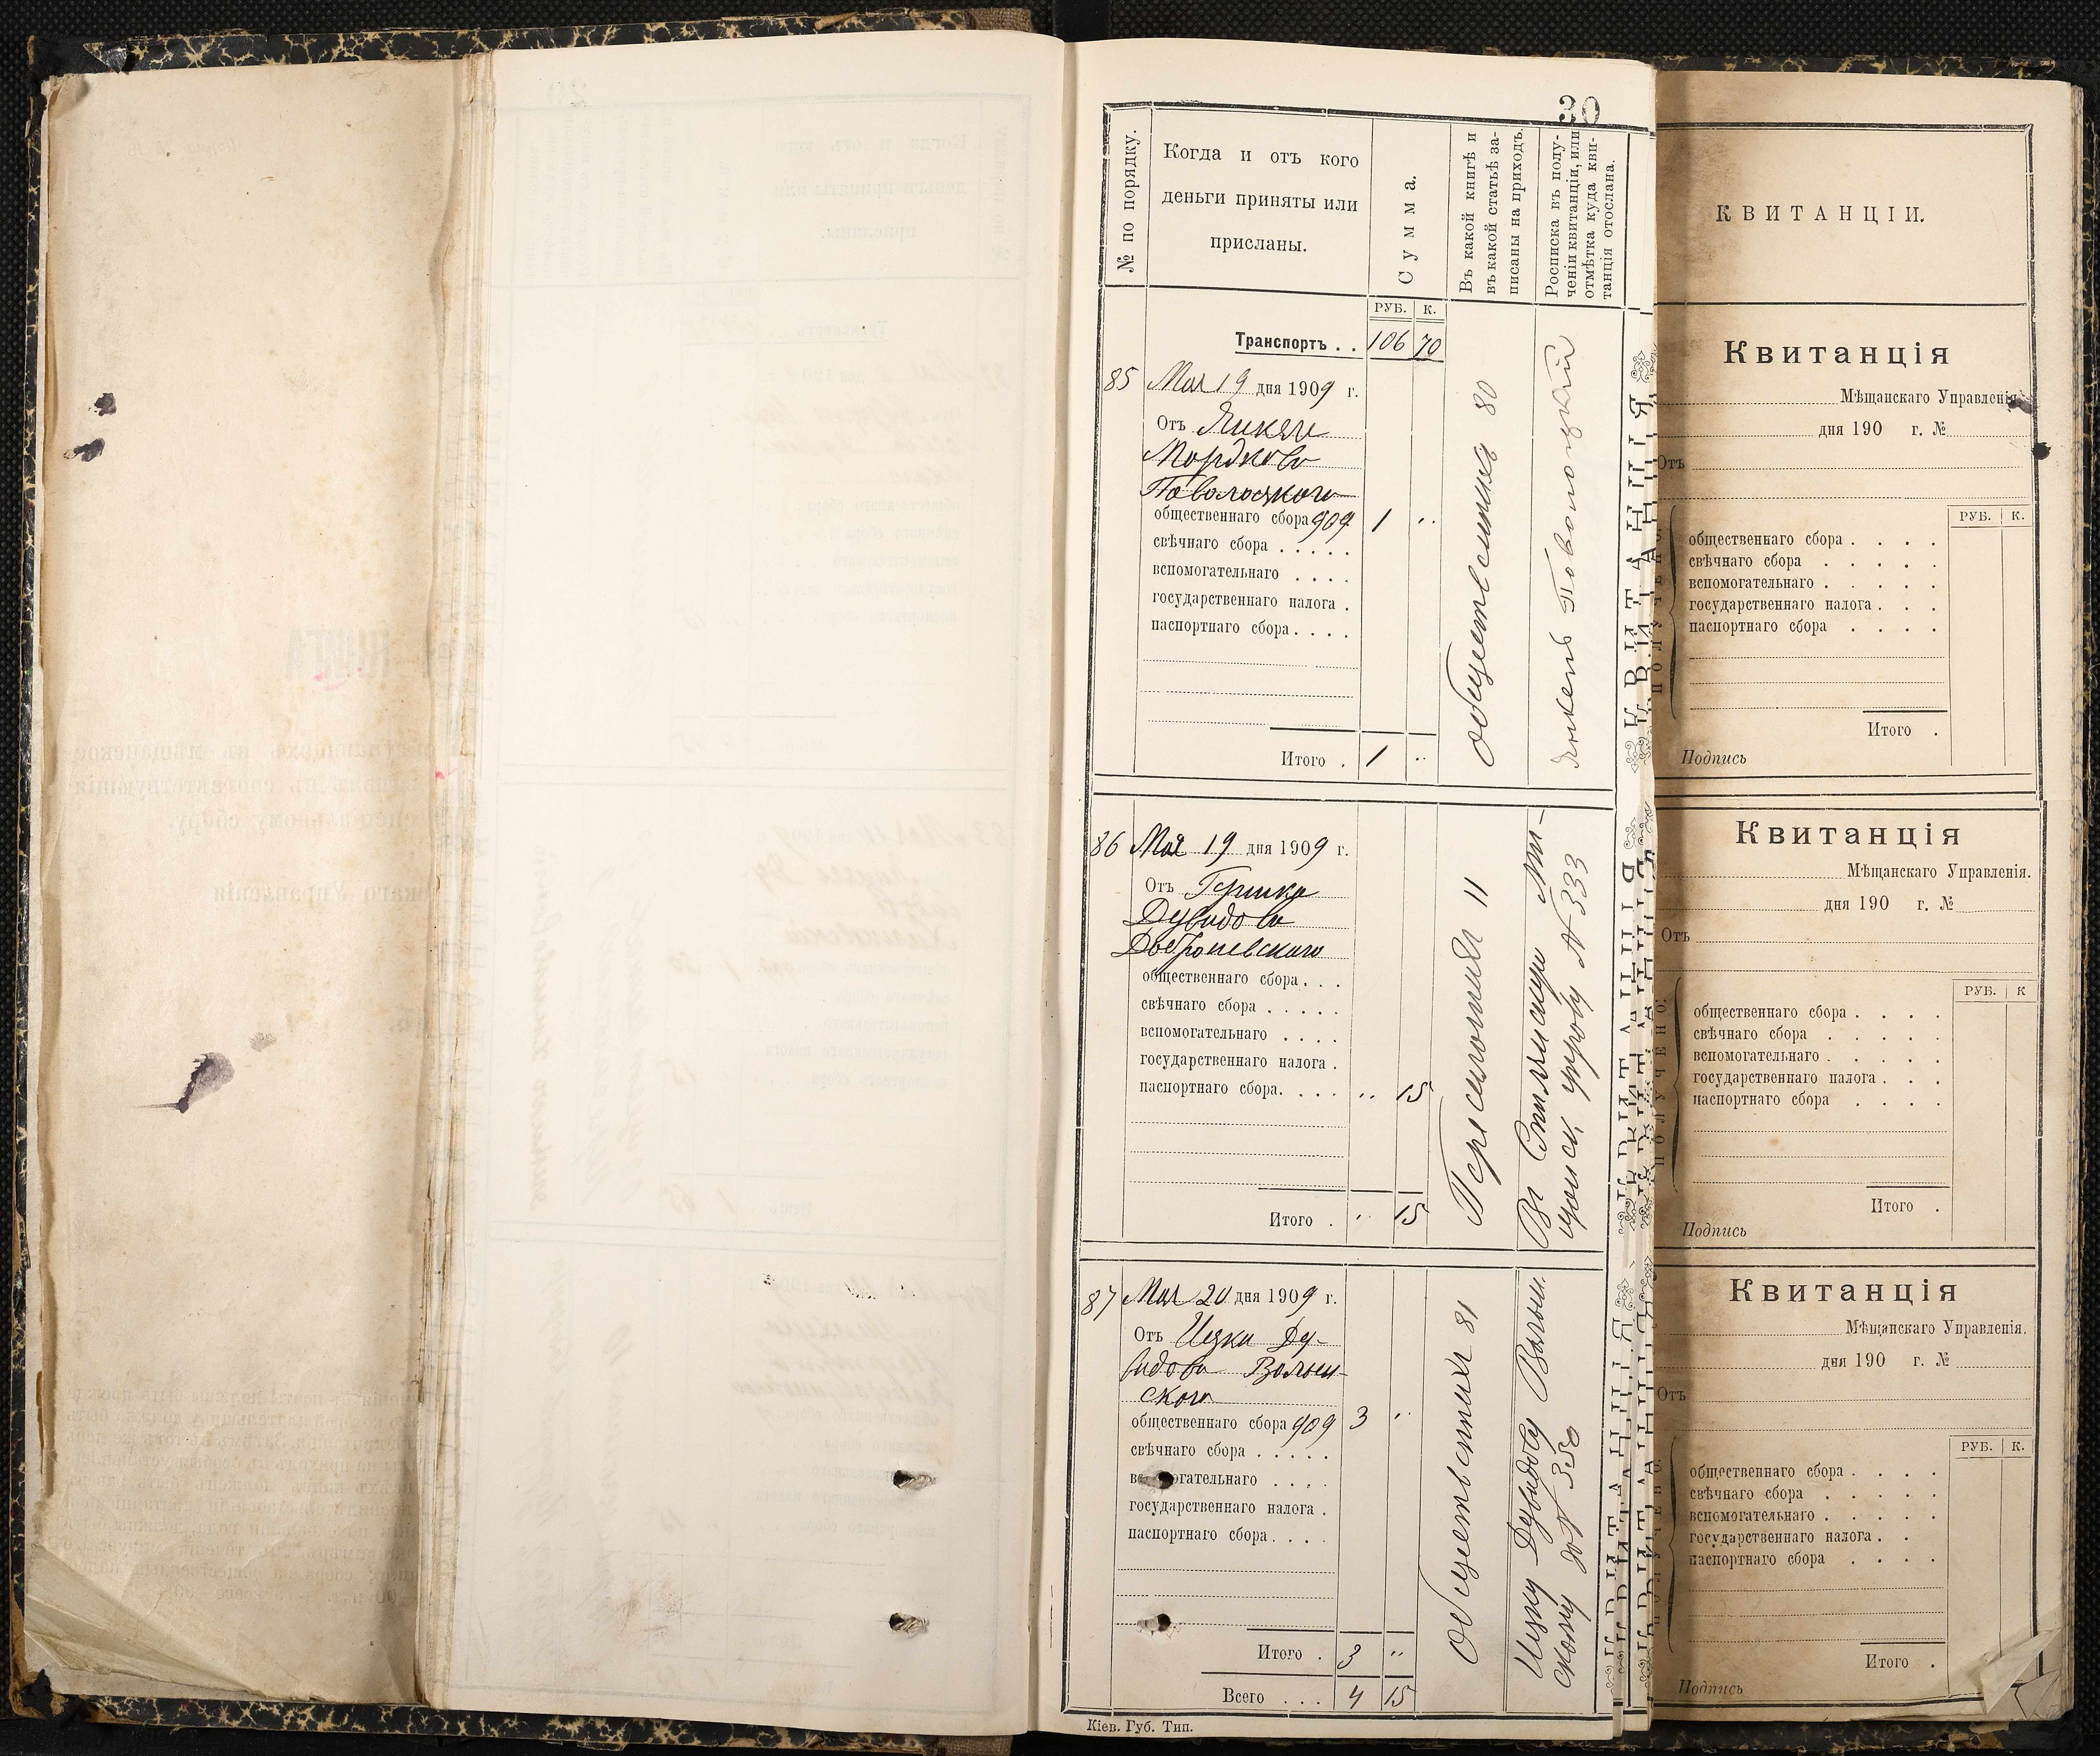 30
№ по порядку.
Когда и отъ кого
деньги приняты или
присланы.
Сумма.
Въ какой книгѣ и
въ какой статьѣ за-
писаны на приходъ.
Росписка въ полу-
ченіи квитанціи, или
отмѣтка куда кви-
танція отослана.
РУБ. К.
Транспортъ . . 106 70
85 Мая 19 дня 1909 г.
Отъ Янкеля
Мордкова
Поволоцкаго
общественнаго сбора 909 1 "
свѣчнаго сбора . . . . .
вспомогательнаго . . . .
государственнаго налога .
паспортнаго сбора. . . .
Итого . 1 "
Общественныя 80
Янкель Поволоцкій
86 Мая 19 дня 1909 г.
Отъ Гершка
Дувидова
общественнаго сбора. . .
свѣчнаго сбора . . . . .
вспомогательнаго . . . .
государственнаго налога .
паспортнаго сбора. . . . " 15
Итого . " 15
11
Въ
№ 333
87 Мая 20 дня 1909 г.
Отъ Ицка Ду-
видова Волын-
скаго
общественнаго сбора 909 3 "
свѣчнаго сбора . . . . .
вспомогательнаго . . . .
государственнаго налога .
паспортнаго сбора. . . .
Итого . 3 "
Всего . . . 4 15
Общественныя 81
Ицку Дувидову Волын.
скому
Кіев. Губ. Тип.
КВИТАНЦІИ.
Квитанція
Мѣщанскаго Управленія.
дня 190 г. №
Отъ
ПОЛУЧЕНО:
РУБ. К.
общественнаго сбора . . . .
свѣчнаго сбора . . . . .
вспомогательнаго . . . . .
государственнаго налога . . .
паспортнаго сбора . . . .
Итого .
Подпись
Квитанція
Мѣщанскаго Управленія.
дня 190 г. №
Отъ
ПОЛУЧЕНО:
РУБ. К
общественнаго сбора . . . .
свѣчнаго сбора . . . . .
вспомогательнаго . . . . .
государственнаго налога . . .
паспортнаго сбора . . . .
Итого .
Подпись
Квитанція
Мѣщанскаго Управленія.
дня 190 г. №
Отъ
РУБ. К.
общественнаго сбора . . . .
свѣчнаго сбора . . . . .
вспомогательнаго . . . . .
государственнаго налога . . .
паспортнаго сбора . . . .
Итого .
Подпись